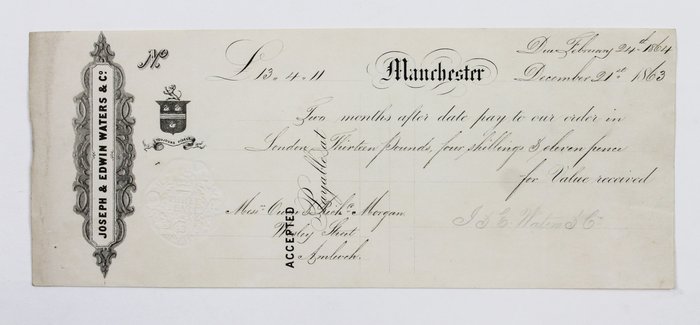 JOSEPH & EDWIN WATERS & Co.
No
£13.4.11
Due February 24th 1864
Manchester December 21st 1863
Two months after date pay to our order in
London Thirteen pounds, four shillings & eleven pence
for Value received
ACCEPTED
Payable at
Messrs Owen & Richd Morgan
Wesley Street
Amlwch.
J & E Waters & Co